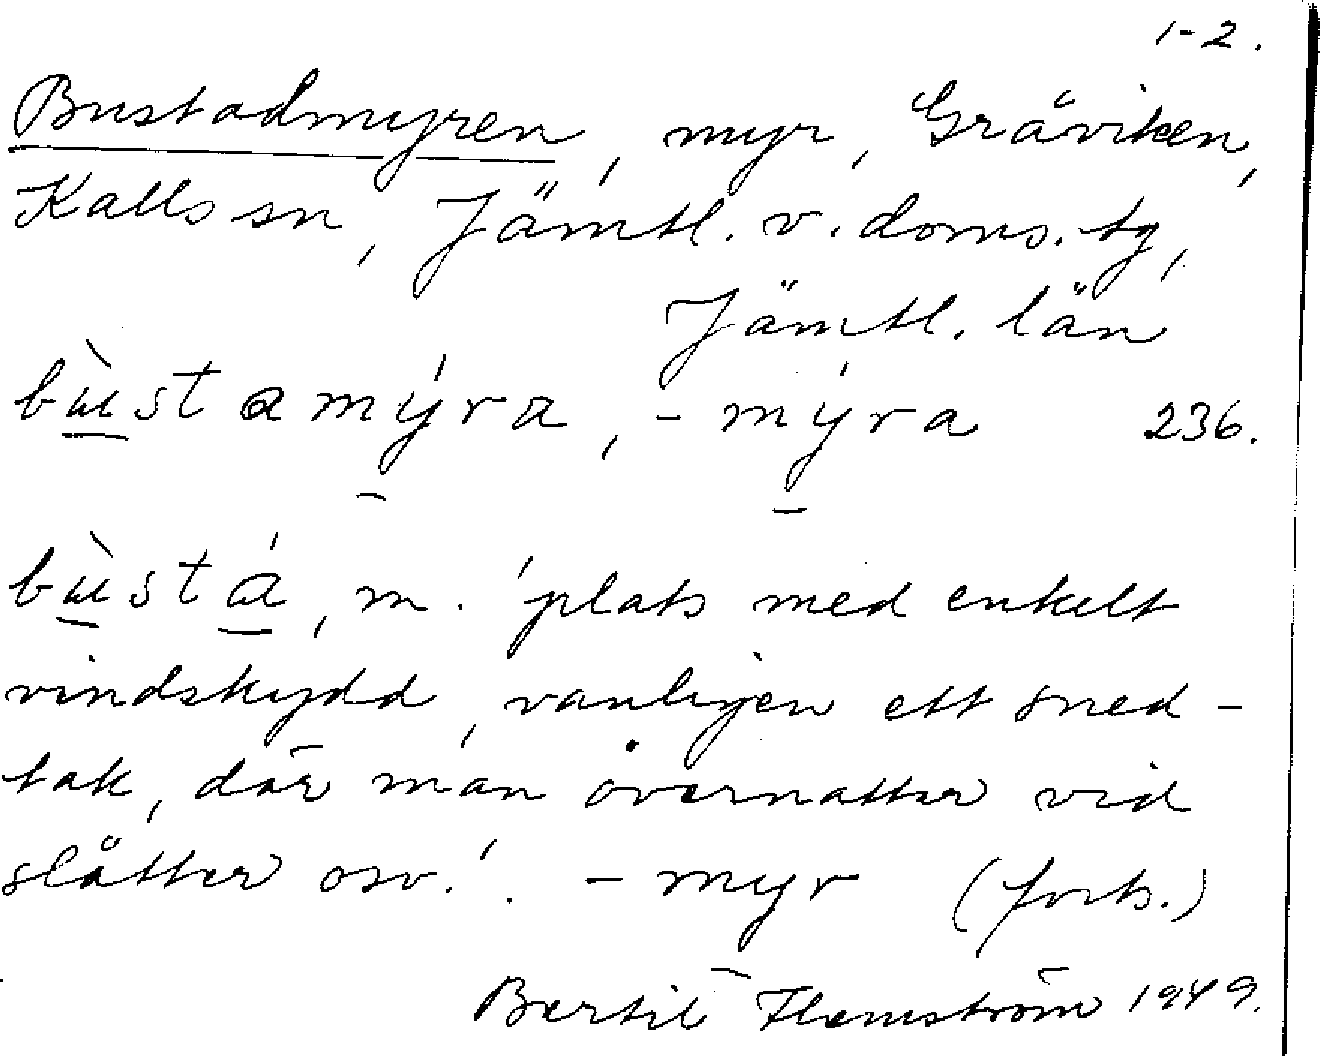 1-2.
Bustadmyren, myr, Gråviken,
Kalls sn, Jämtl. v. doms. tg,
Jämtl. län
bùstamýra, -mýra 236.
bùstá, m. 'plats med enkelt
vindskydd, vanligen ett sned-
tak, där man övernattar vid
slåtter osv.' - myr (forts.)
Bertil Flemström 1949.